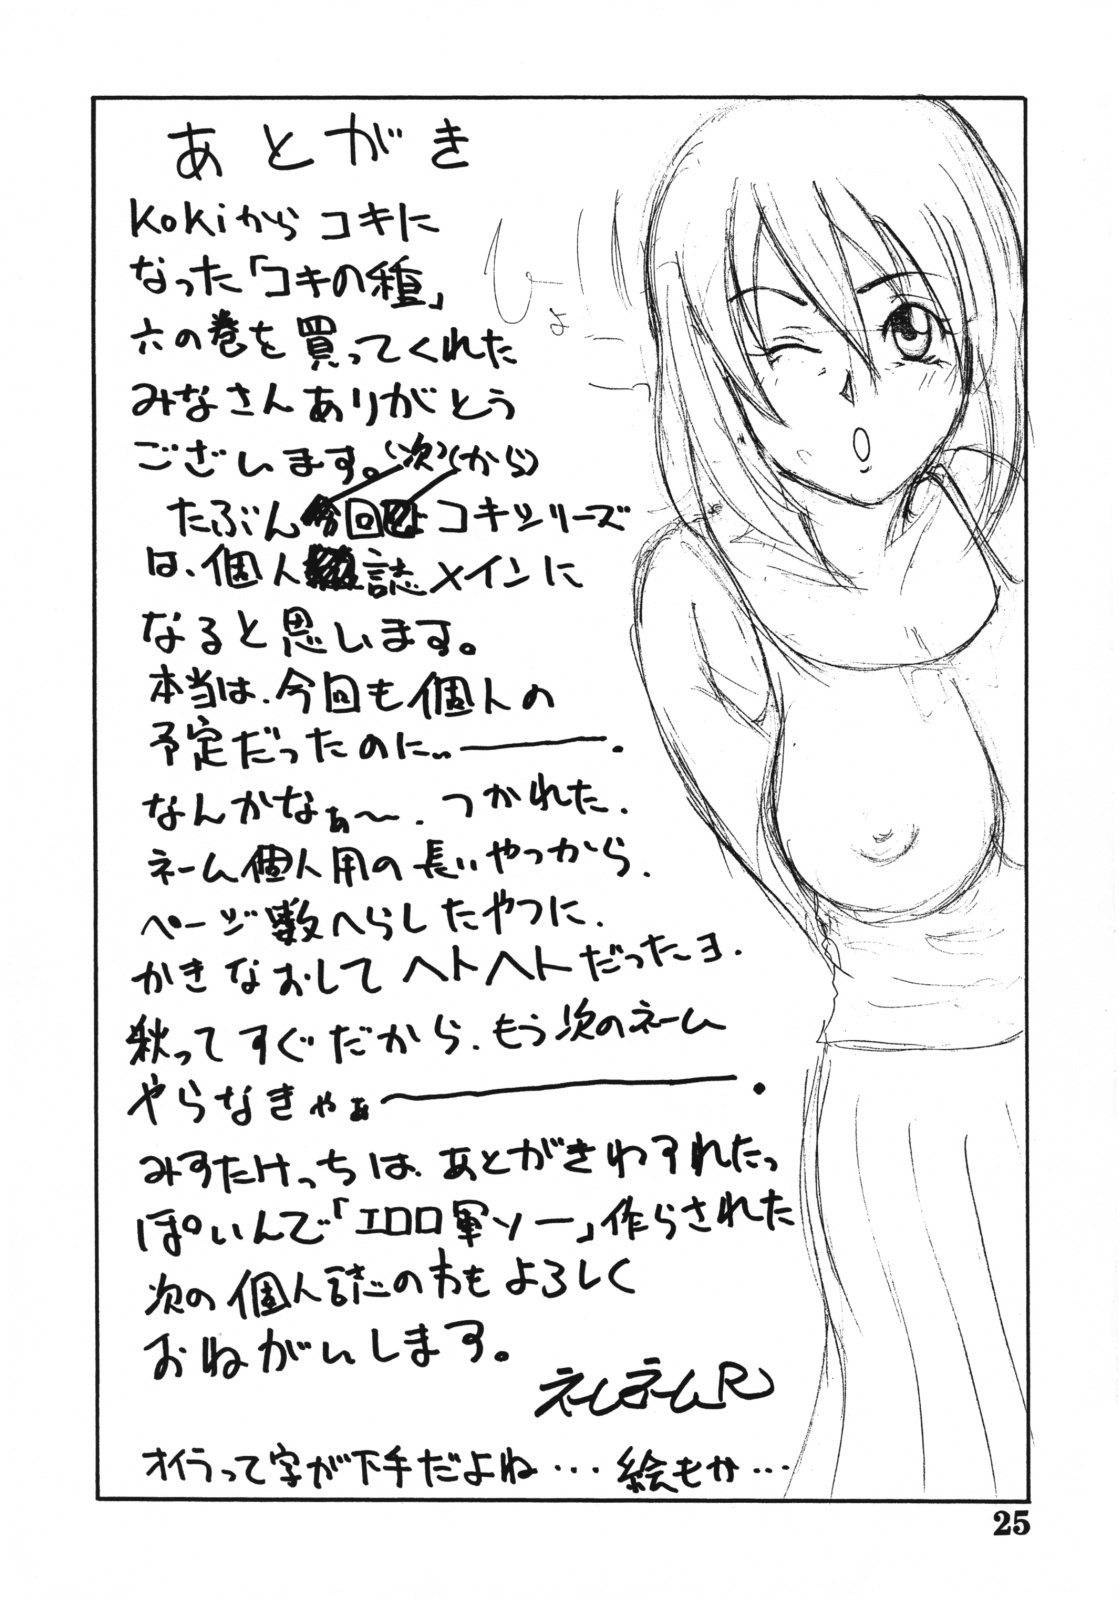 あとがき
kokiからコキに
なった「コキの種」
六の巻を買ってくれた
みなさんありがとう
ございます。(次)(から)
たぶん今回は コキシリーズ
は、個人誌メインに
なると思います。
本当は、今回も個人の
予定だったのに‥――.
なんかなぁ〜. つかれた.
ネーム個人用の長いやつから.
ページ数へらしたやつに.
かきなおしてヘトヘトだった〜ヨ.
秋ってすぐだから、もう次のネーム
やらなきゃぁ――.
みすたけっちは、あとがきわすれたっ
ぽいんで「エロロ軍ソー」作らされた
次の個人誌のわもよろしく
おねがいします。
ネームネームR
オイラって字が下手だよね・・・絵もか・・・
ひょー
25